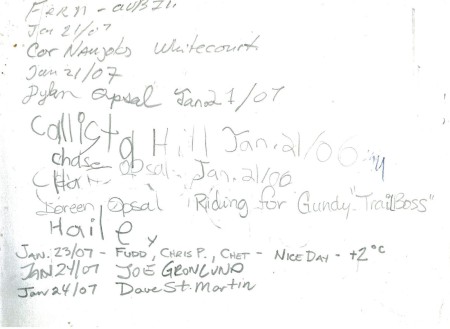 Jan 21/07
Whitecourt
Jan 21/07
Dylan Opsal Jan 21/07
Callista Hill Jan. 21/06
chase Opsal Jan. 21/06
Doreen Opsal Riding for Gundy "TrailBoss"
Hailey
JAN. 23/07 - FUDD, CHRIS P., CHET - NICE DAY - +2°C
JAN 24/07 JOE GRONLUND
Jan 24/07 Dave St. Martin